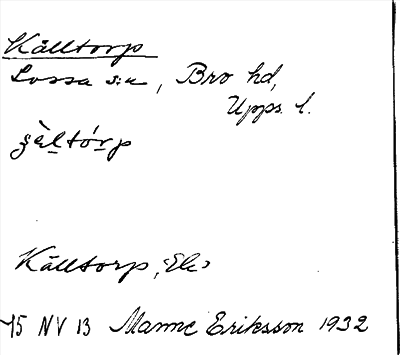 Källtorp
Lossa s:n, Bro hd,
Upps. l.
Källtorp, Ek
15 NV 13 Manne Eriksson 1932